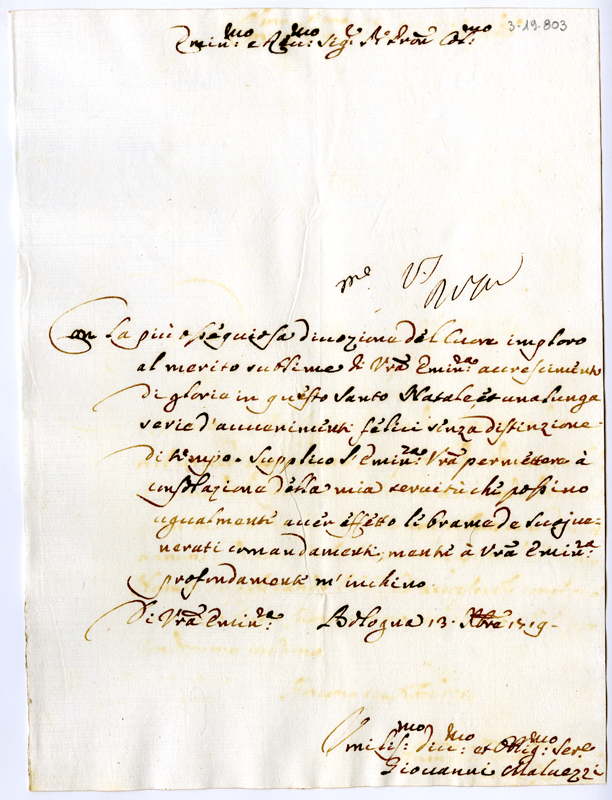 3-19-803
Emin:mo e R:mo Sig:r Pr'on Col:mo
Con la più ossequiosa divozione del Cuore imploro
al merito sublime di Vra Emin:za accrescimenti
di gloria in questo Santo Natale, et una lunga
serie d'avvenimenti felici senza distinzione
di tempo. Supplico l'Emin:za Vra permettere à
consolazione della mia servitù che possino
ugualmente aver effetto le brame de suoi ve=
nerati comandamenti, mentre à Vra Emin:za
profondamente m'inchino.
Di Vra Emin:za Bologna 13. Xbre 1719.
Umiliss:mo et Oblig:mo Ser.e
Giovanni Malvezzi